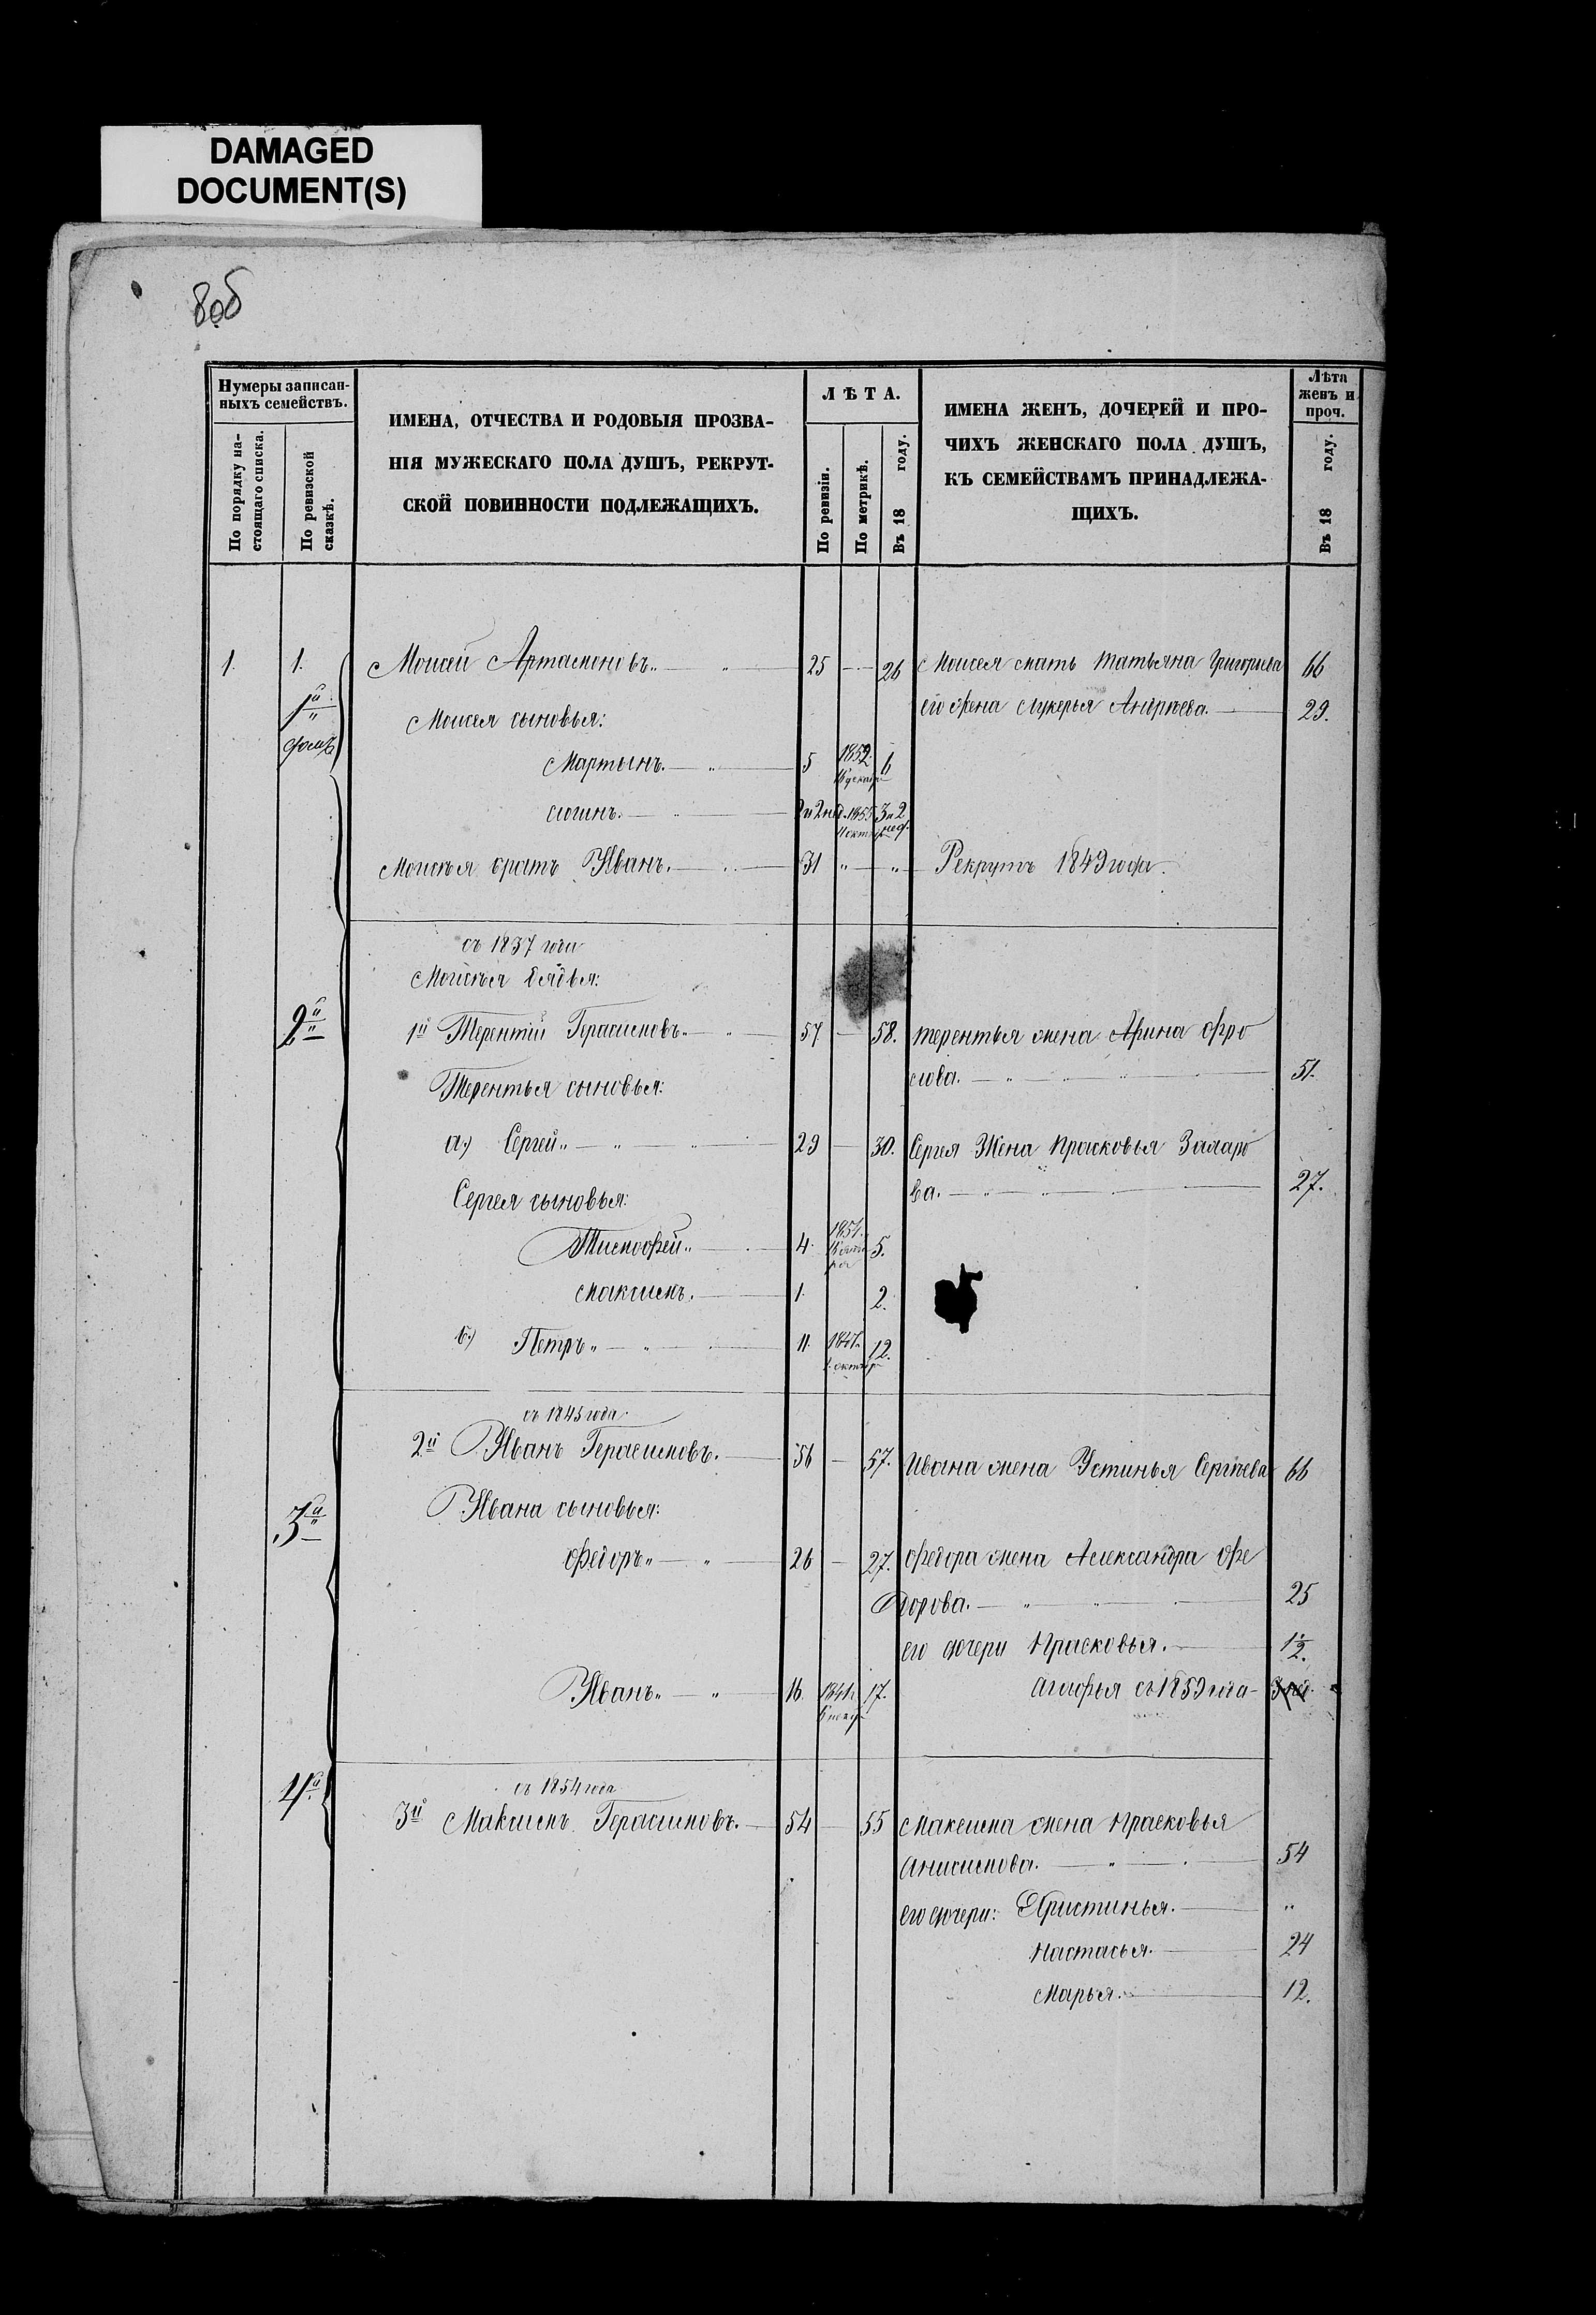 DAMAGED
DOCUMENT(S)
8об
Нумеры записан-
ныхъ семействъ.
По порядку на-
стоящаго списка.
По ревизской
сказкѣ.
ИМЕНА, ОТЧЕСТВА И РОДОВЫЯ ПРОЗВА-
НІЯ МУЖЕСКАГО ПОЛА ДУШЪ, РЕКРУТ-
СКОЙ ПОВИННОСТИ ПОДЛЕЖАЩИХЪ.
ЛѢТА.
По ревизіи.
По метрикѣ.
Въ 18 году.
ИМЕНА ЖЕНЪ, ДОЧЕРЕЙ И ПРО-
ЧИХЪ ЖЕНСКАГО ПОЛА ДУШЪ,
КЪ СЕМЕЙСТВАМЪ ПРИНАДЛЕЖА-
ЩИХЪ.
Лѣта
женъ и
проч.
Въ 18 году.
1. 1. Моисей Артамоновъ 25 — 26 Моисея мать Татьяна Григорьева 66
1й Моисея сыновья: его жена Лукерья Андрѣева. 29.
домъ
Мартынъ. 5 1852. 6
Логинъ. 1855 3 и 2
Моисея братъ Иванъ. 31 " " Рекрутъ 1849 года.
съ 1837 года
Моисея дядья:
2й 1й Терентій Герасимовъ 57 — 58. Терентья жена Арина Фро
лова. 51.
Терентья сыновья:
а) Сергей 29 — 30. Сергея Жена Прасковья Захаро
ва. 27.
Сергея сыновья:
Тимофей 4. 1854. 5.
Максимъ. 1. 2.
б) Петръ 11. 12.
съ 1845 года
2й Иванъ Герасимовъ. 56 — 57. Ивана жена Устинья Сергѣева 66
3й Ивана сыновья:
Федоръ 26 — 27. Федора жена Александра Фе
дорова. 25
его дочери Прасковья. 1½.
Иванъ 16. 1841 17. Агафья съ 1859 года
съ 1854 года
4й 3й Максимъ Герасимовъ. 54 — 55 Максима жена Прасковья
Анисимова. 54
его дочери: Христинья. "
Настасья. 24
Марья. 12.